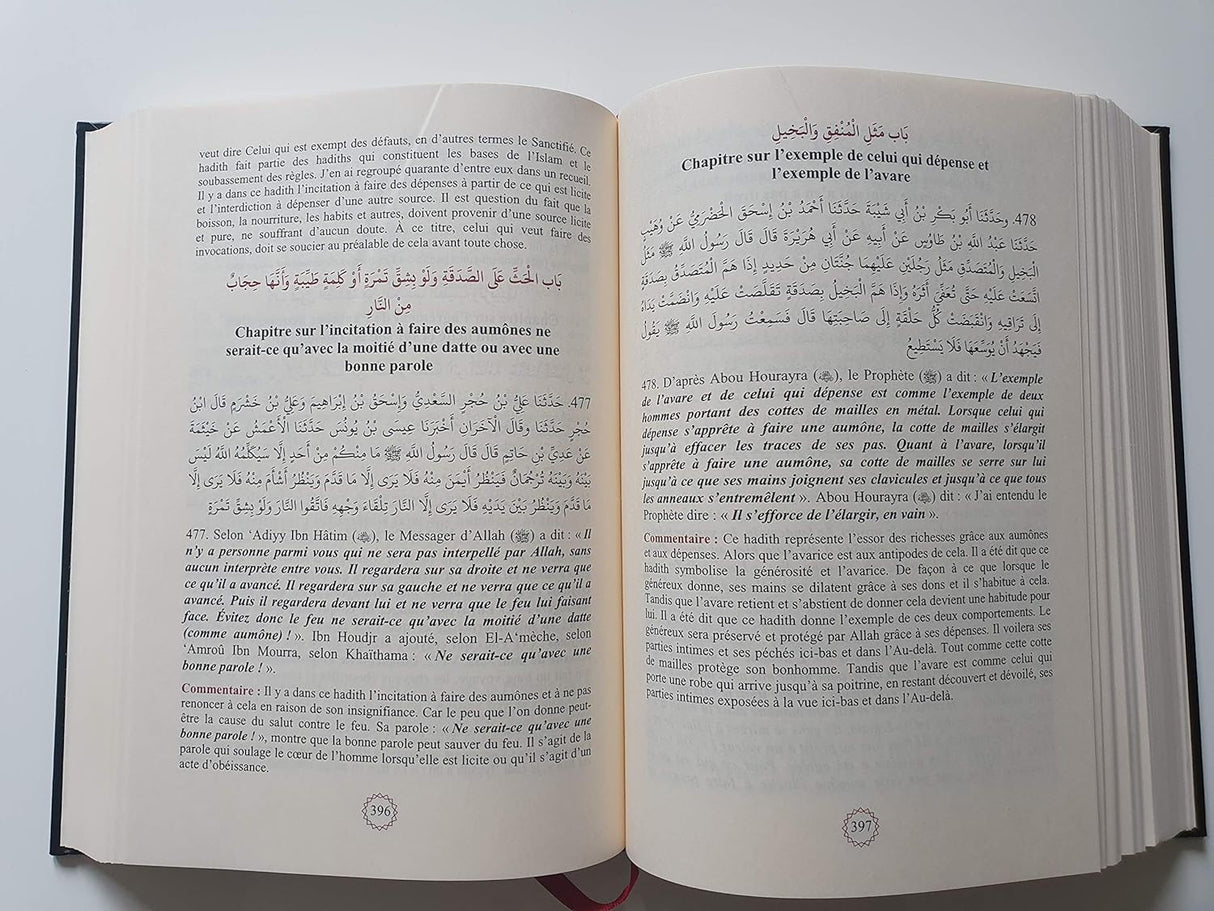 veut dire Celui qui est exempt des défauts, en d'autres termes le Sanctifié. Ce
hadith fait partie des hadiths qui constituent les bases de l'Islam et le
soubassement des règles. J'en ai regroupé quarante d'entre eux dans un recueil.
Il y a dans ce hadith l'incitation à faire des dépenses à partir de ce qui est licite
et l'interdiction à dépenser d'une autre source. Il est question du fait que la
boisson, la nourriture, les habits et autres, doivent provenir d'une source licite
et pure, ne souffrant d'aucun doute. À ce titre, celui qui veut faire des
invocations, doit se soucier au préalable de cela avant toute chose.
بَاب الْحَثِّ عَلَى الصَّدَقَةِ وَلَوْ بِشِقِّ تَمْرَةٍ أَوْ كَلِمَةٍ طَيِّبَةٍ وَأَنَّهَا حِجَابٌ
مِنْ النَّارِ
Chapitre sur l'incitation à faire des aumônes ne
serait-ce qu'avec la moitié d'une datte ou avec une
bonne parole
477. حَدَّثَنَا عَلِيُّ بْنُ حُجْرٍ السَّعْدِيُّ وَإِسْحَقُ بْنُ إِبْرَاهِيمَ وَعَلِيُّ بْنُ خَشْرَمٍ قَالَ ابْنُ
حُجْرٍ حَدَّثَنَا وقَالَ الْآخَرَانِ أَخْبَرَنَا عِيسَى بْنُ يُونُسَ حَدَّثَنَا الْأَعْمَشُ عَنْ خَيْثَمَةَ
عَنْ عَدِيِّ بْنِ حَاتِمٍ قَالَ قَالَ رَسُولُ اللَّهِ ﷺ مَا مِنْكُمْ مِنْ أَحَدٍ إِلَّا سَيُكَلِّمُهُ اللَّهُ لَيْسَ
بَيْنَهُ وَبَيْنَهُ تُرْجُمَانٌ فَيَنْظُرُ أَيْمَنَ مِنْهُ فَلَا يَرَى إِلَّا مَا قَدَّمَ وَيَنْظُرُ أَشْأَمَ مِنْهُ فَلَا يَرَى إِلَّا
مَا قَدَّمَ وَيَنْظُرُ بَيْنَ يَدَيْهِ فَلَا يَرَى إِلَّا النَّارَ تِلْقَاءَ وَجْهِهِ فَاتَّقُوا النَّارَ وَلَوْ بِشِقِّ تَمْرَةٍ
477. Selon ‘Adiyy Ibn Hâtim (), le Messager d'Allah (ﷺ) a dit : « Il
n'y a personne parmi vous qui ne sera pas interpellé par Allah, sans
aucun interprète entre vous. Il regardera sur sa droite et ne verra que
ce qu'il a avancé. Il regardera sur sa gauche et ne verra que ce qu'il a
avancé. Puis il regardera devant lui et ne verra que le feu lui faisant
face. Évitez donc le feu ne serait-ce qu'avec la moitié d'une datte
(comme aumône) ! ». Ibn Houdjr a ajouté, selon El-A‘mèche, selon
‘Amroû Ibn Mourra, selon Khaïthama : « Ne serait-ce qu'avec une
bonne parole ! ».
Commentaire : Il y a dans ce hadith l'incitation à faire des aumônes et à ne pas
renoncer à cela en raison de son insignifiance. Car le peu que l'on donne peut-
être la cause du salut contre le feu. Sa parole : « Ne serait-ce qu'avec une
bonne parole ! », montre que la bonne parole peut sauver du feu. Il s'agit de la
parole qui soulage le cœur de l'homme lorsqu'elle est licite ou qu'il s'agit d'un
acte d'obéissance.
396
بَاب مَثَلِ الْمُنْفِقِ وَالْبَخِيلِ
Chapitre sur l'exemple de celui qui dépense et
l'exemple de l'avare
478. وحَدَّثَنَا أَبُو بَكْرِ بْنُ أَبِي شَيْبَةَ حَدَّثَنَا أَحْمَدُ بْنُ إِسْحَقَ الْحَضْرَمِيُّ عَنْ وُهَيْبٍ
حَدَّثَنَا عَبْدُ اللَّهِ بْنُ طَاوُسٍ عَنْ أَبِيهِ عَنْ أَبِي هُرَيْرَةَ قَالَ قَالَ رَسُولُ اللَّهِ ﷺ مَثَلُ
الْبَخِيلِ وَالْمُتَصَدِّقِ مَثَلُ رَجُلَيْنِ عَلَيْهِمَا جُنَّتَانِ مِنْ حَدِيدٍ إِذَا هَمَّ الْمُتَصَدِّقُ بِصَدَقَةٍ
اتَّسَعَتْ عَلَيْهِ حَتَّى تُعَفِّيَ أَثَرَهُ وَإِذَا هَمَّ الْبَخِيلُ بِصَدَقَةٍ تَقَلَّصَتْ عَلَيْهِ وَانْضَمَّتْ يَدَاهُ
إِلَى تَرَاقِيهِ وَانْقَبَضَتْ كُلُّ حَلْقَةٍ إِلَى صَاحِبَتِهَا قَالَ فَسَمِعْتُ رَسُولَ اللَّهِ ﷺ يَقُولُ
فَيَجْهَدُ أَنْ يُوَسِّعَهَا فَلَا يَسْتَطِيعُ
478. D'après Abou Hourayra (), le Prophète (ﷺ) a dit : « L'exemple
de l'avare et de celui qui dépense est comme l'exemple de deux
hommes portant des cottes de mailles en métal. Lorsque celui qui
dépense s'apprête à faire une aumône, la cotte de mailles s'élargit
jusqu'à effacer les traces de ses pas. Quant à l'avare, lorsqu'il
s'apprête à faire une aumône, sa cotte de mailles se serre sur lui
jusqu'à ce que ses mains joignent ses clavicules et jusqu'à ce que tous
les anneaux s'entremêlent ». Abou Hourayra () dit : « J'ai entendu le
Prophète dire : « Il s'efforce de l'élargir, en vain ».
Commentaire : Ce hadith représente l'essor des richesses grâce aux aumônes
et aux dépenses. Alors que l'avarice est aux antipodes de cela. Il a été dit que ce
hadith symbolise la générosité et l'avarice. De façon à ce que lorsque le
généreux donne, ses mains se dilatent grâce à ses dons et il s'habitue à cela.
Tandis que l'avare retient et s'abstient de donner cela devient une habitude pour
lui. Il a été dit que ce hadith donne l'exemple de ces deux comportements. Le
généreux sera préservé et protégé par Allah grâce à ses dépenses. Il voilera ses
parties intimes et ses péchés ici-bas et dans l'Au-delà. Tout comme cette cotte
de mailles protège son bonhomme. Tandis que l'avare est comme celui qui
porte une robe qui arrive jusqu'à sa poitrine, en restant découvert et dévoilé, ses
parties intimes exposées à la vue ici-bas et dans l'Au-delà.
397